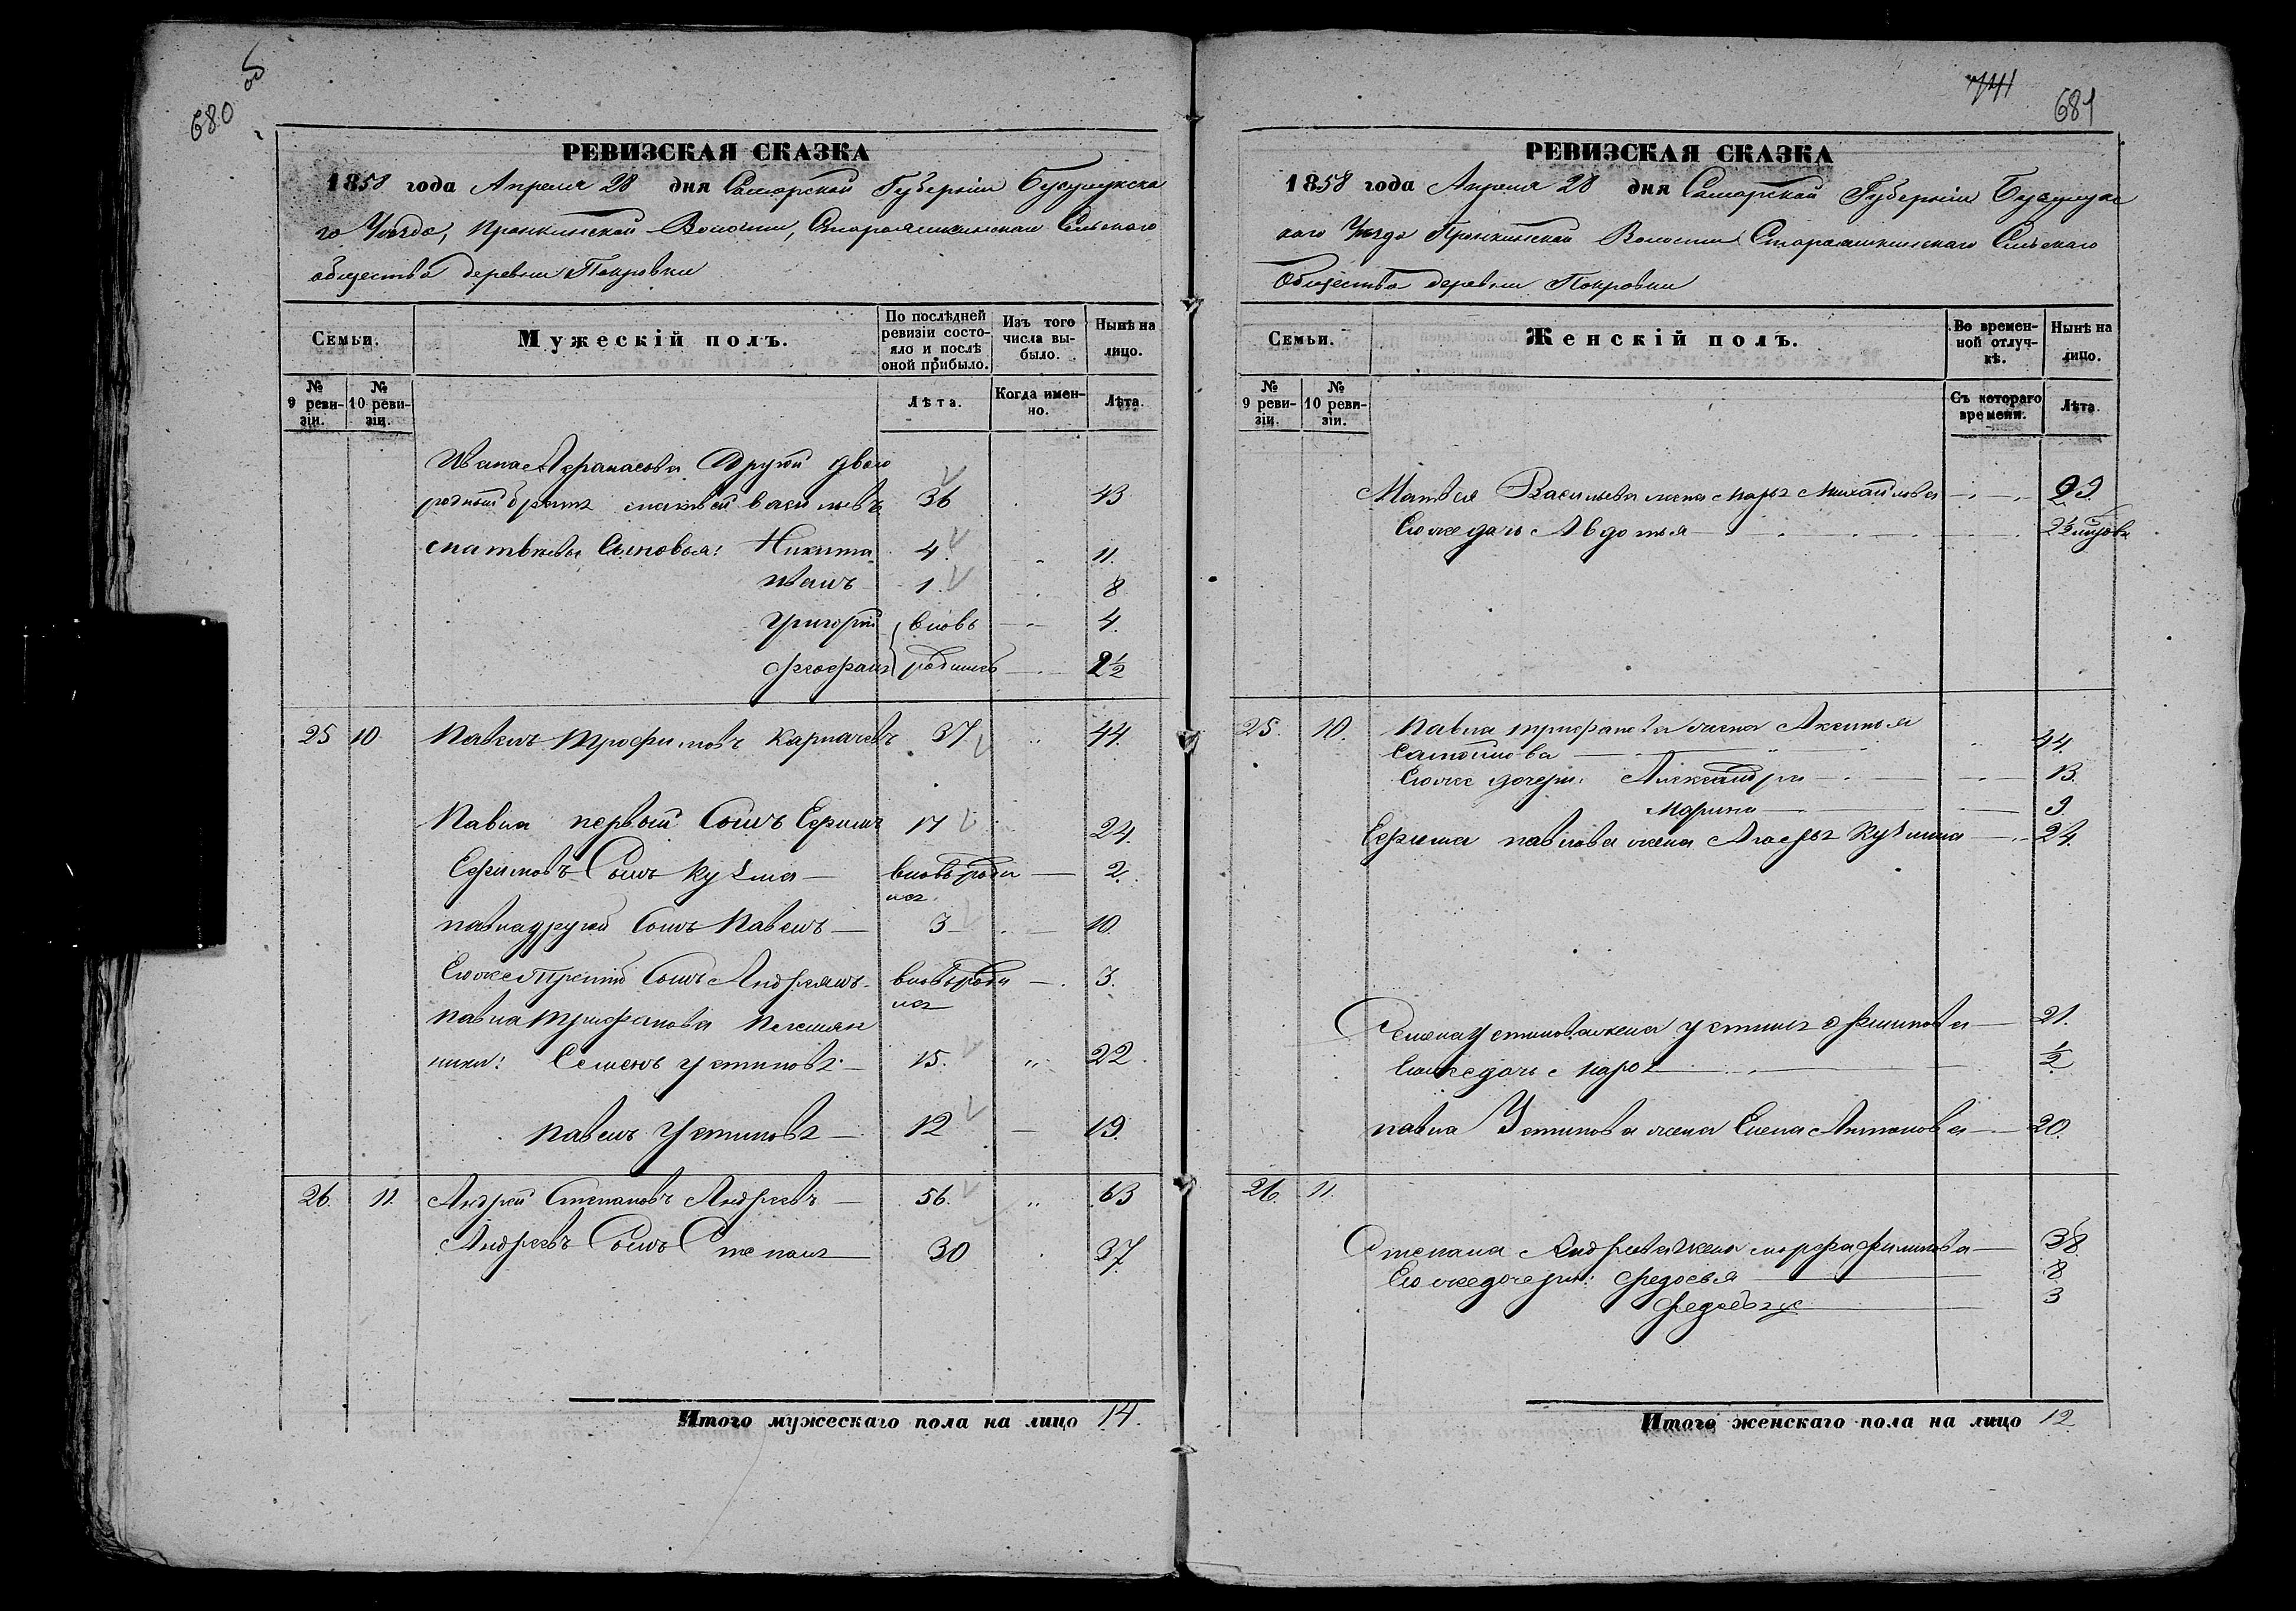 680 об
РЕВИЗСКАЯ СКАЗКА
1858 года Апреля 28 дня Самарской Губернiи Бузулукска
го Уезда, Пронкинской Волости, Староашкинскаго Сельскаго
общества деревни Покровки
Семьи.
Мужескiй полъ.
По послѣдней ревизiи состо-
яло и послѣ оной прибыло.
Изъ того числа вы-
было.
Нынѣ на лицо.
№ 9 реви-
зiи.
№ 10 реви-
зiи.
Лѣта.
Когда имен-
но.
Лѣта.
Ивана Афанасьева другой двою
родный братъ матвей васильевъ 36 43
матвеевы Сыновья: Никита 4 11.
иванъ 1. 8
григорiй вновь 4.
феофанъ родились 2½
25 10 Павелъ Трофимовъ Карпачевъ 37 44.
Павла первый Сынъ Ефимъ 17 24.
Ефимовъ Сынъ Кузма вновь роди
лся 2.
павла другой Сынъ Павелъ 3 10.
Его же Третiй Сынъ Андреянъ вновь роди
лся 3.
павла Трифанова племян
ники: Семенъ устиновъ 15. 22.
павелъ устиновъ 12 19.
26. 11. Андрей Степановъ Андреевъ 56. 63
Андреевъ Сынъ Степанъ 30 37.
Итого мужескаго пола на лицо 14.
741
681
РЕВИЗСКАЯ СКАЗКА
1858 года Апреля 28 дня Самарской Губернiи Бузулукс
каго Уезда Пронкинской Волости Староашкинскаго Сельскаго
Общества деревни Покровки
Семьи.
Женскiй полъ.
Во времен-
ной отлуч-
кѣ.
Нынѣ на лицо.
№ 9 реви-
зiи.
№ 10 реви-
зiи.
Съ котораго времени.
Лѣта.
Матвея Васильева жена Марья Михайлова 29.
Его же дочь Авдотья 2½
25. 10. Павла трифанова жена Аксинья
Самойлова 44.
Его же дочери: Александра 13.
Марина 9.
Ефима павлова жена Агафья Кузмина 24.
Семена Устинова жена устинья Филипова 21.
Его же дочь Марья ½
павла Устинова жена Елена Антонова 20.
26. 11.
Степана Андреева жена марфа филипова 38.
Его же дочери: федосья 8
3
Итого женскаго пола на лицо 12